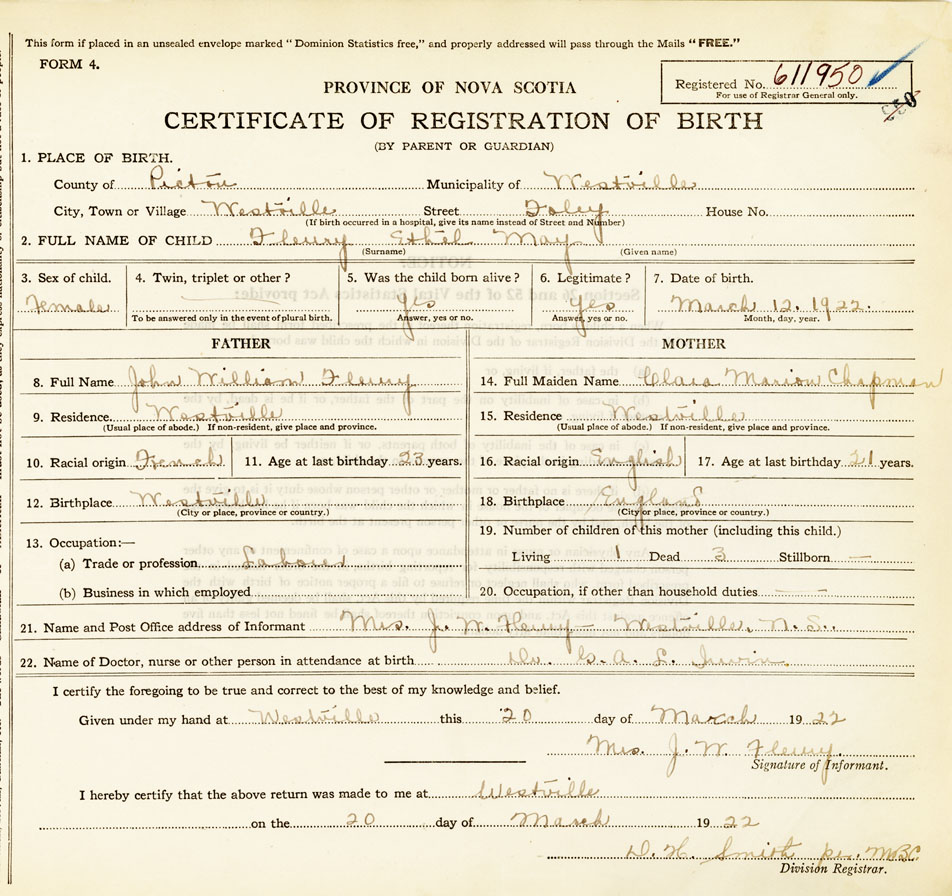 This form if placed in an unsealed envelope marked "Dominion Statistics free," and properly addressed will pass through the Mails "FREE."
FORM 4.
Registered No. 611950
For use of Registrar General only.
PROVINCE OF NOVA SCOTIA
CERTIFICATE OF REGISTRATION OF BIRTH
(BY PARENT OR GUARDIAN)
1. PLACE OF BIRTH.
County of Pictou Municipality of Westville
City, Town or Village Westville Street Foley House No.
(If birth occurred in a hospital, give its name instead of Street and Number)
2. FULL NAME OF CHILD Fleury Ethel May
(Surname) (Given name)
3. Sex of child. 4. Twin, triplet or other? 5. Was the child born alive? 6. Legitimate? 7. Date of birth.
Female yes yes March 12. 1922.
To be answered only in the event of plural birth. Answer, yes or no. Answer, yes or no. Month, day, year.
FATHER MOTHER
8. Full Name John William Fleury 14. Full Maiden Name Clara Marion Chapman
9. Residence Westville 15. Residence Westville
(Usual place of abode.) If non-resident, give place and province. (Usual place of abode.) If non-resident, give place and province.
10. Racial origin French 11. Age at last birthday 23 years. 16. Racial origin English 17. Age at last birthday 21 years.
12. Birthplace Westville 18. Birthplace England
(City or place, province or country.) (City or place, province or country.)
19. Number of children of this mother (including this child.)
13. Occupation:—
Living 1 Dead 3 Stillborn —
(a) Trade or profession Labourer
(b) Business in which employed 20. Occupation, if other than household duties —
21. Name and Post Office address of Informant Mrs. J. W. Fleury — Westville, N. S.
22. Name of Doctor, nurse or other person in attendance at birth Dr. A. L. Irwin
I certify the foregoing to be true and correct to the best of my knowledge and belief.
Given under my hand at Westville this 20 day of March 1922
Mrs. J. W. Fleury.
Signature of Informant.
I hereby certify that the above return was made to me at Westville
on the 20 day of March 1922
D. H. Smith per. MBC
Division Registrar.